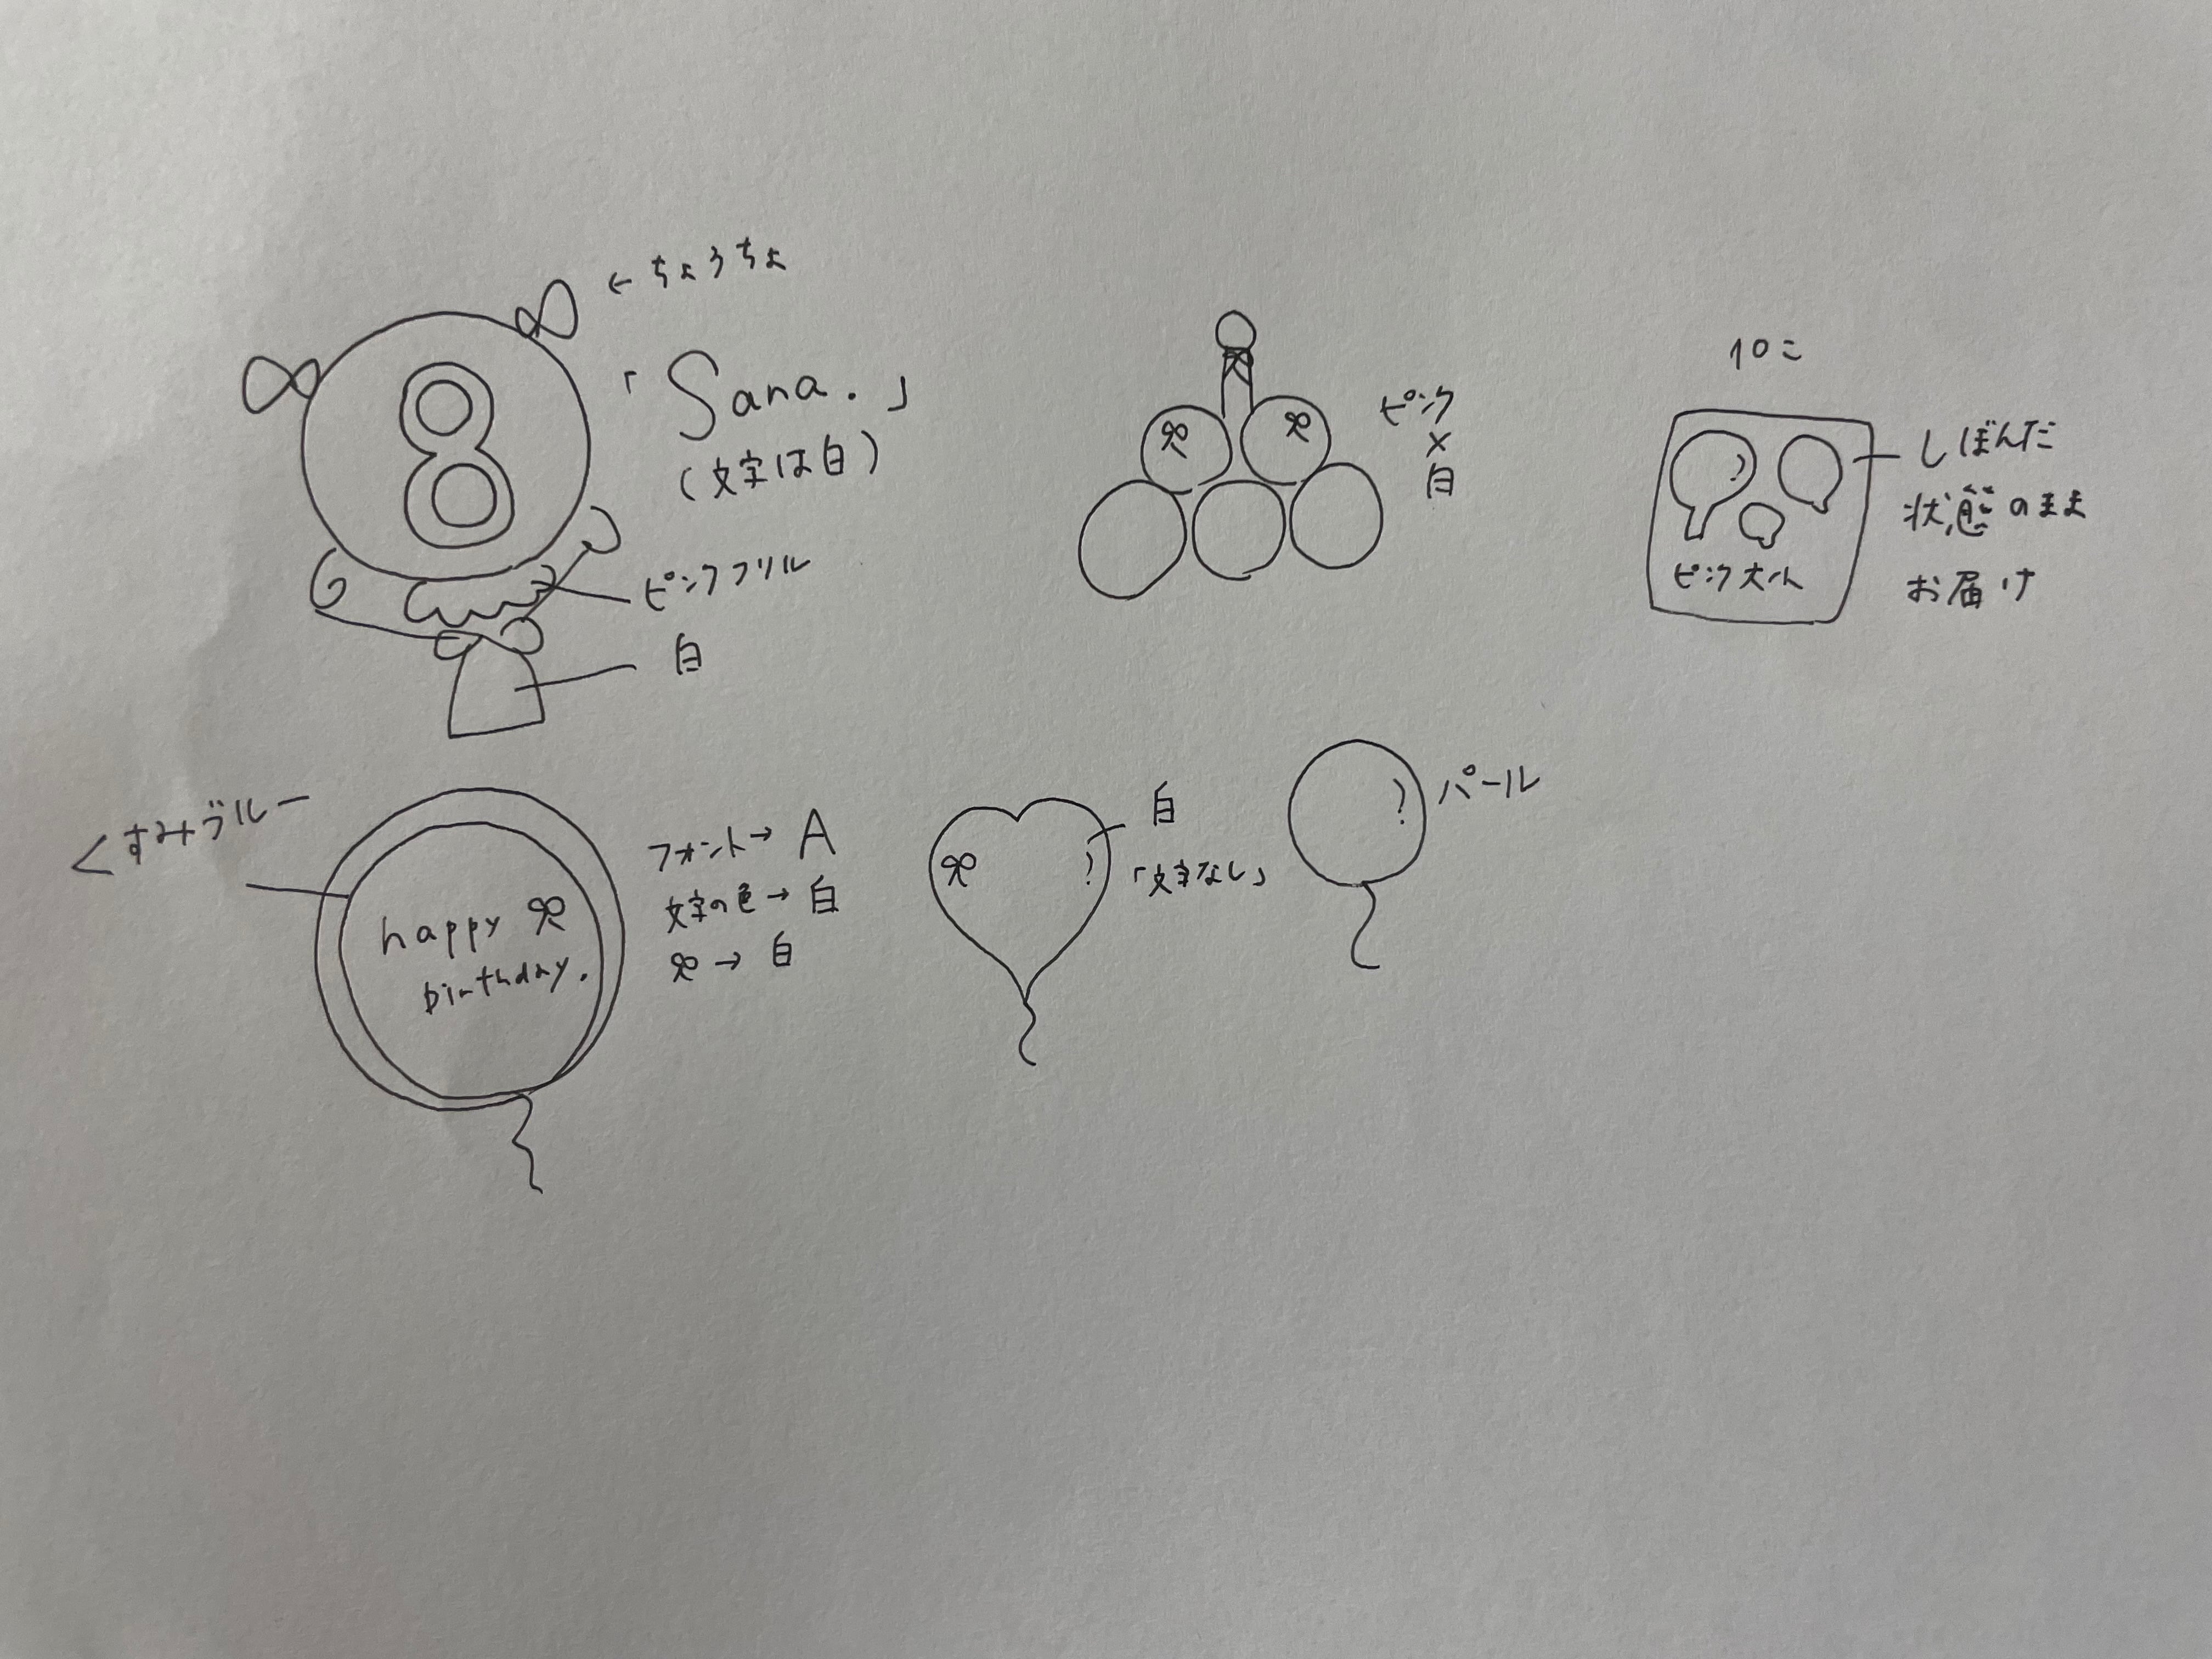 ←ちょうちょ
8
「Sana.」
(文字は白)
ピンクフリル
白
ピンク
×
白
10こ
しぼんだ
状態のまま
お届け
ピンク大小
くすみブルー
happy
birthday.
フォント→A
文字の色→白
→白
白
「文字なし」
パール